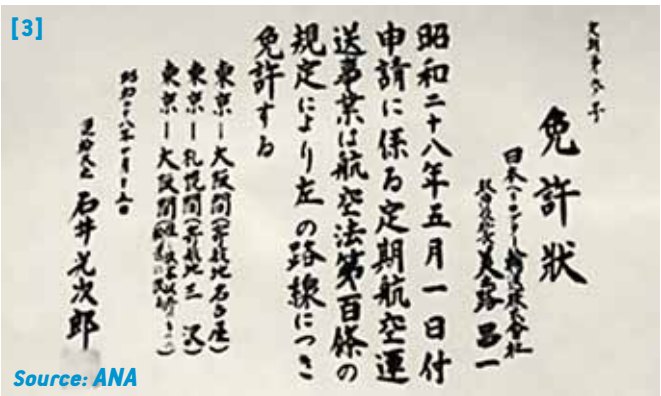 [3]
免許狀
日本ヘリコプター輸送株式会社
美土路昌一
昭和二十八年五月一日付
申請に係る定期航空運
送事業は航空法第百條の
規定により左の路線につき
免許する
東京ー大阪間(寄航地名古屋)
東京ー札幌間(寄航地三沢)
東京ー大阪間
昭和二十八年十月十五日
運輸大臣 石井光次郎
Source: ANA